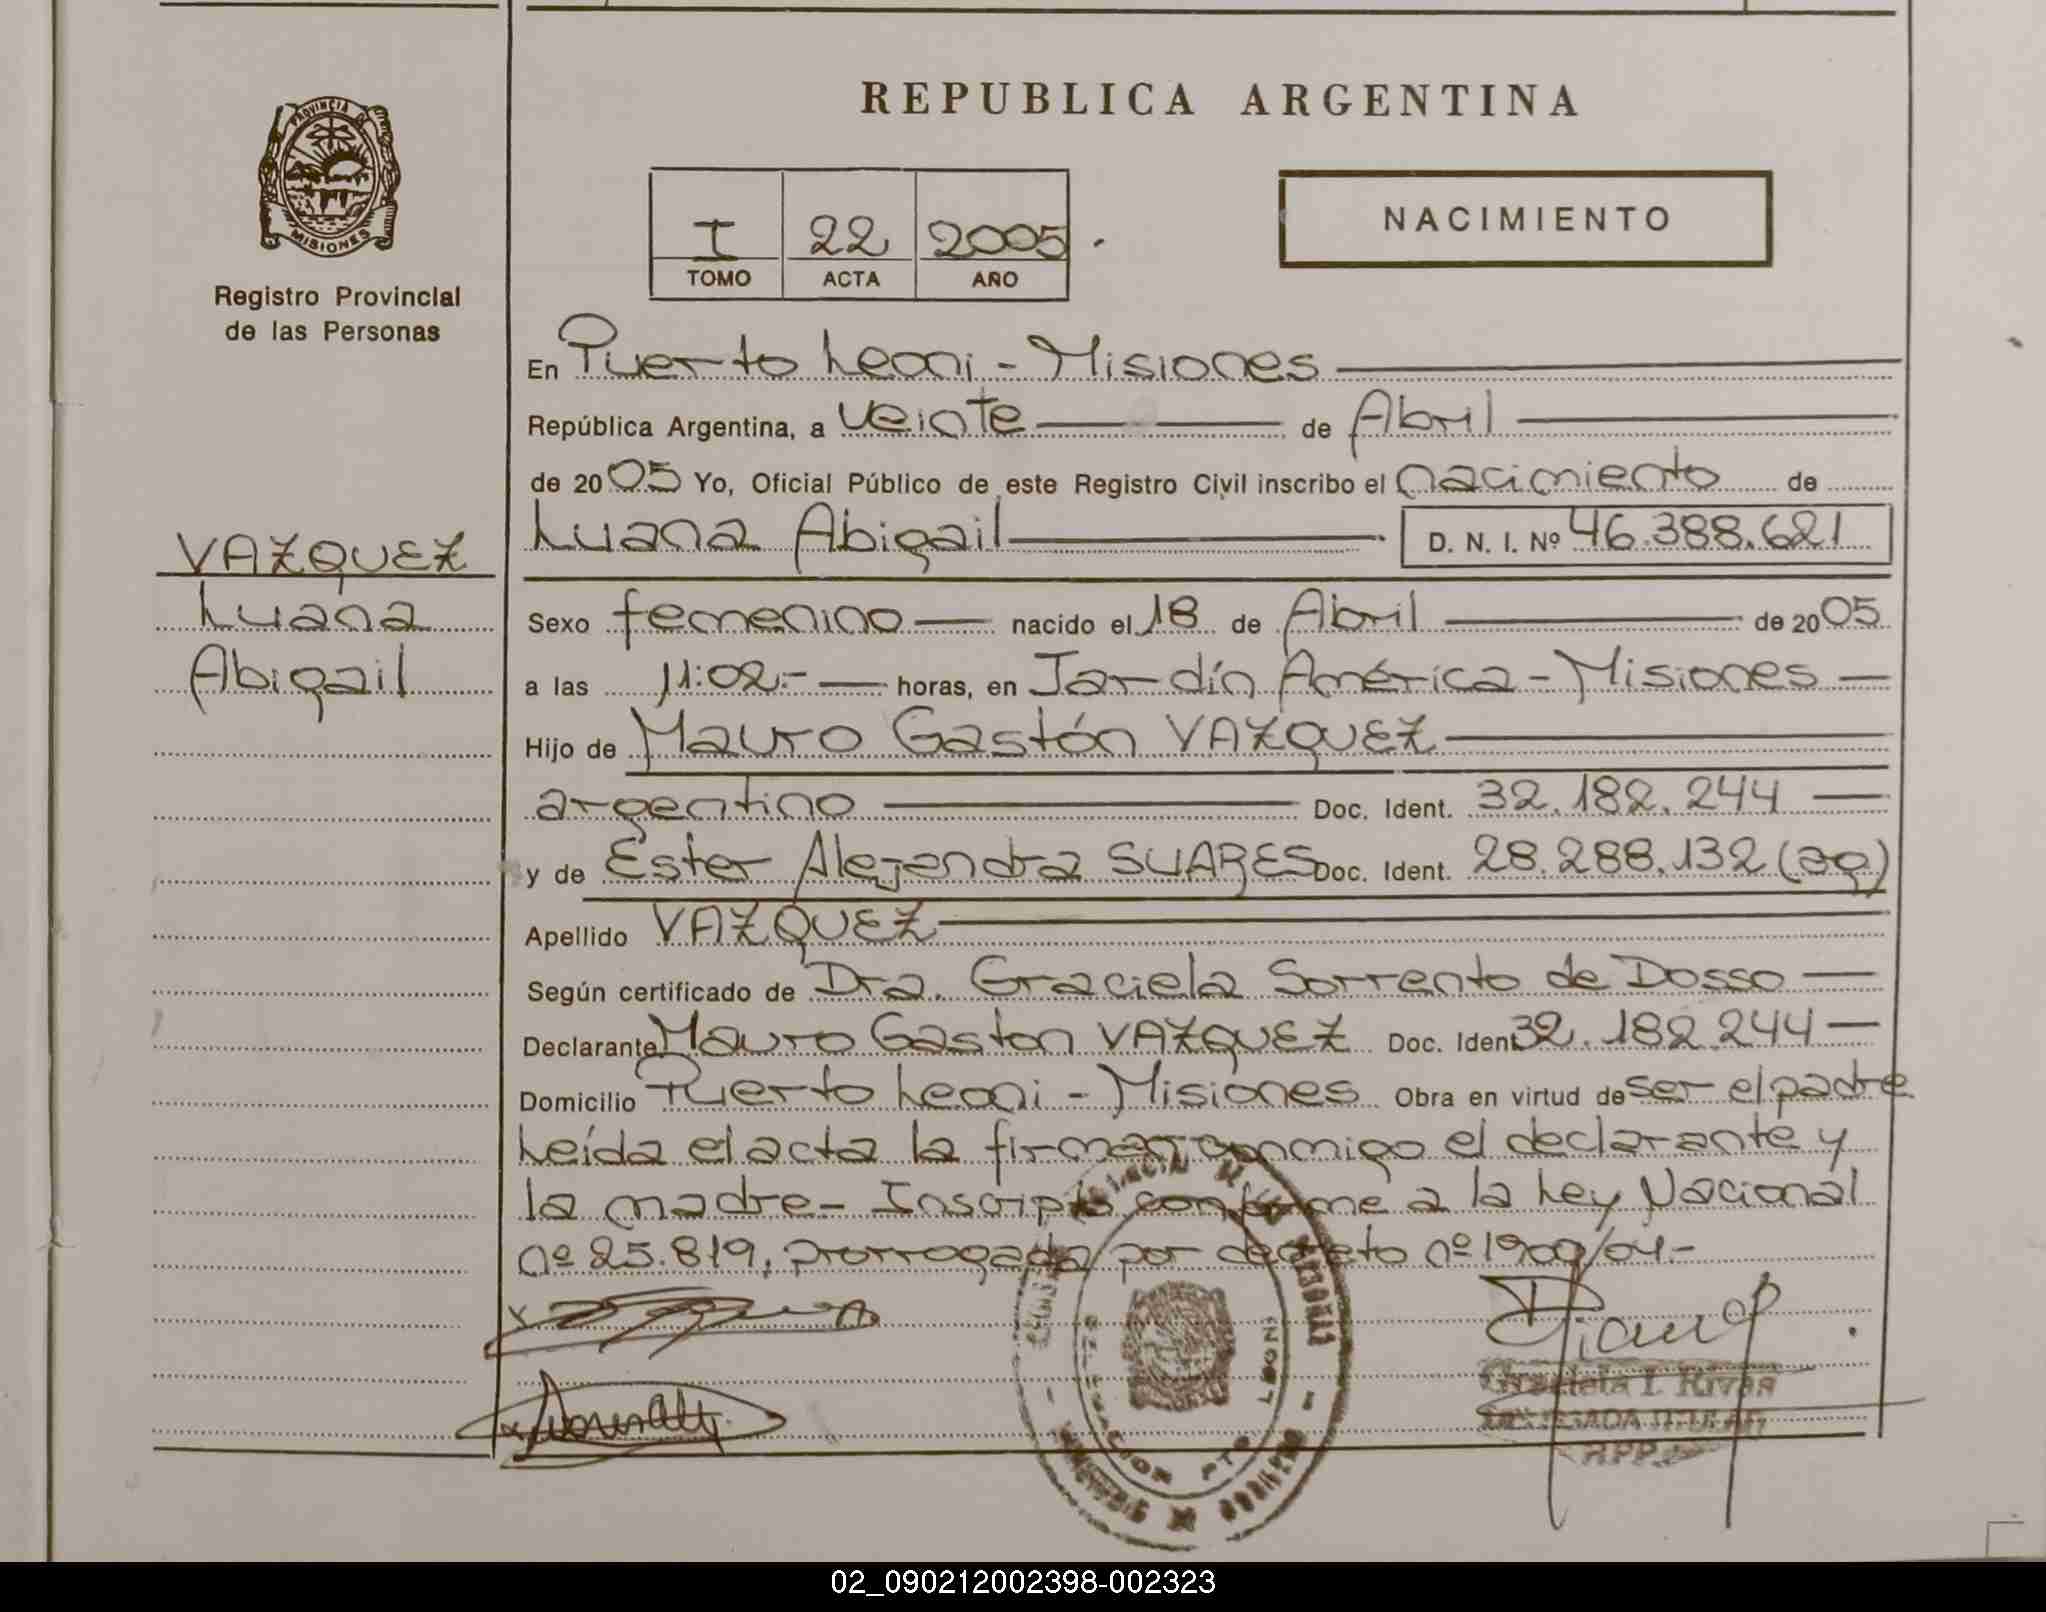 REPUBLICA ARGENTINA
PROVINCIA DE
MISIONES
Registro Provincial
de las Personas
I 22 2005
TOMO ACTA AÑO
NACIMIENTO
En Puerto Leoni - Misiones
República Argentina, a veinte de Abril
de 2005 Yo, Oficial Público de este Registro Civil inscribo el nacimiento de
Luana Abigail D. N. I. Nº 46.388.621
VAZQUEZ
Luana
Abigail
Sexo femenino nacido el 18 de Abril de 2005
a las 11:02.- horas, en Jardín América - Misiones
Hijo de Mauro Gastón VAZQUEZ
argentino Doc. Ident. 32.182.244
y de Ester Alejandra SUARES Doc. Ident. 28.288.132 (ag)
Apellido VAZQUEZ
Según certificado de Dra. Graciela Sorrento de Dosso
Declarante Mauro Gaston VAZQUEZ Doc. Ident 32.182.244
Domicilio Puerto Leoni - Misiones Obra en virtud de ser el padre
Leída el acta la firman conmigo el declarante y
la madre - Inscripto conforme a la Ley Nacional
nº 25.819, prorrogada por decreto nº 1909/04.-
Graciela I. Rivas
DELEGADA TITULAR
R.P.P.
02_090212002398-002323